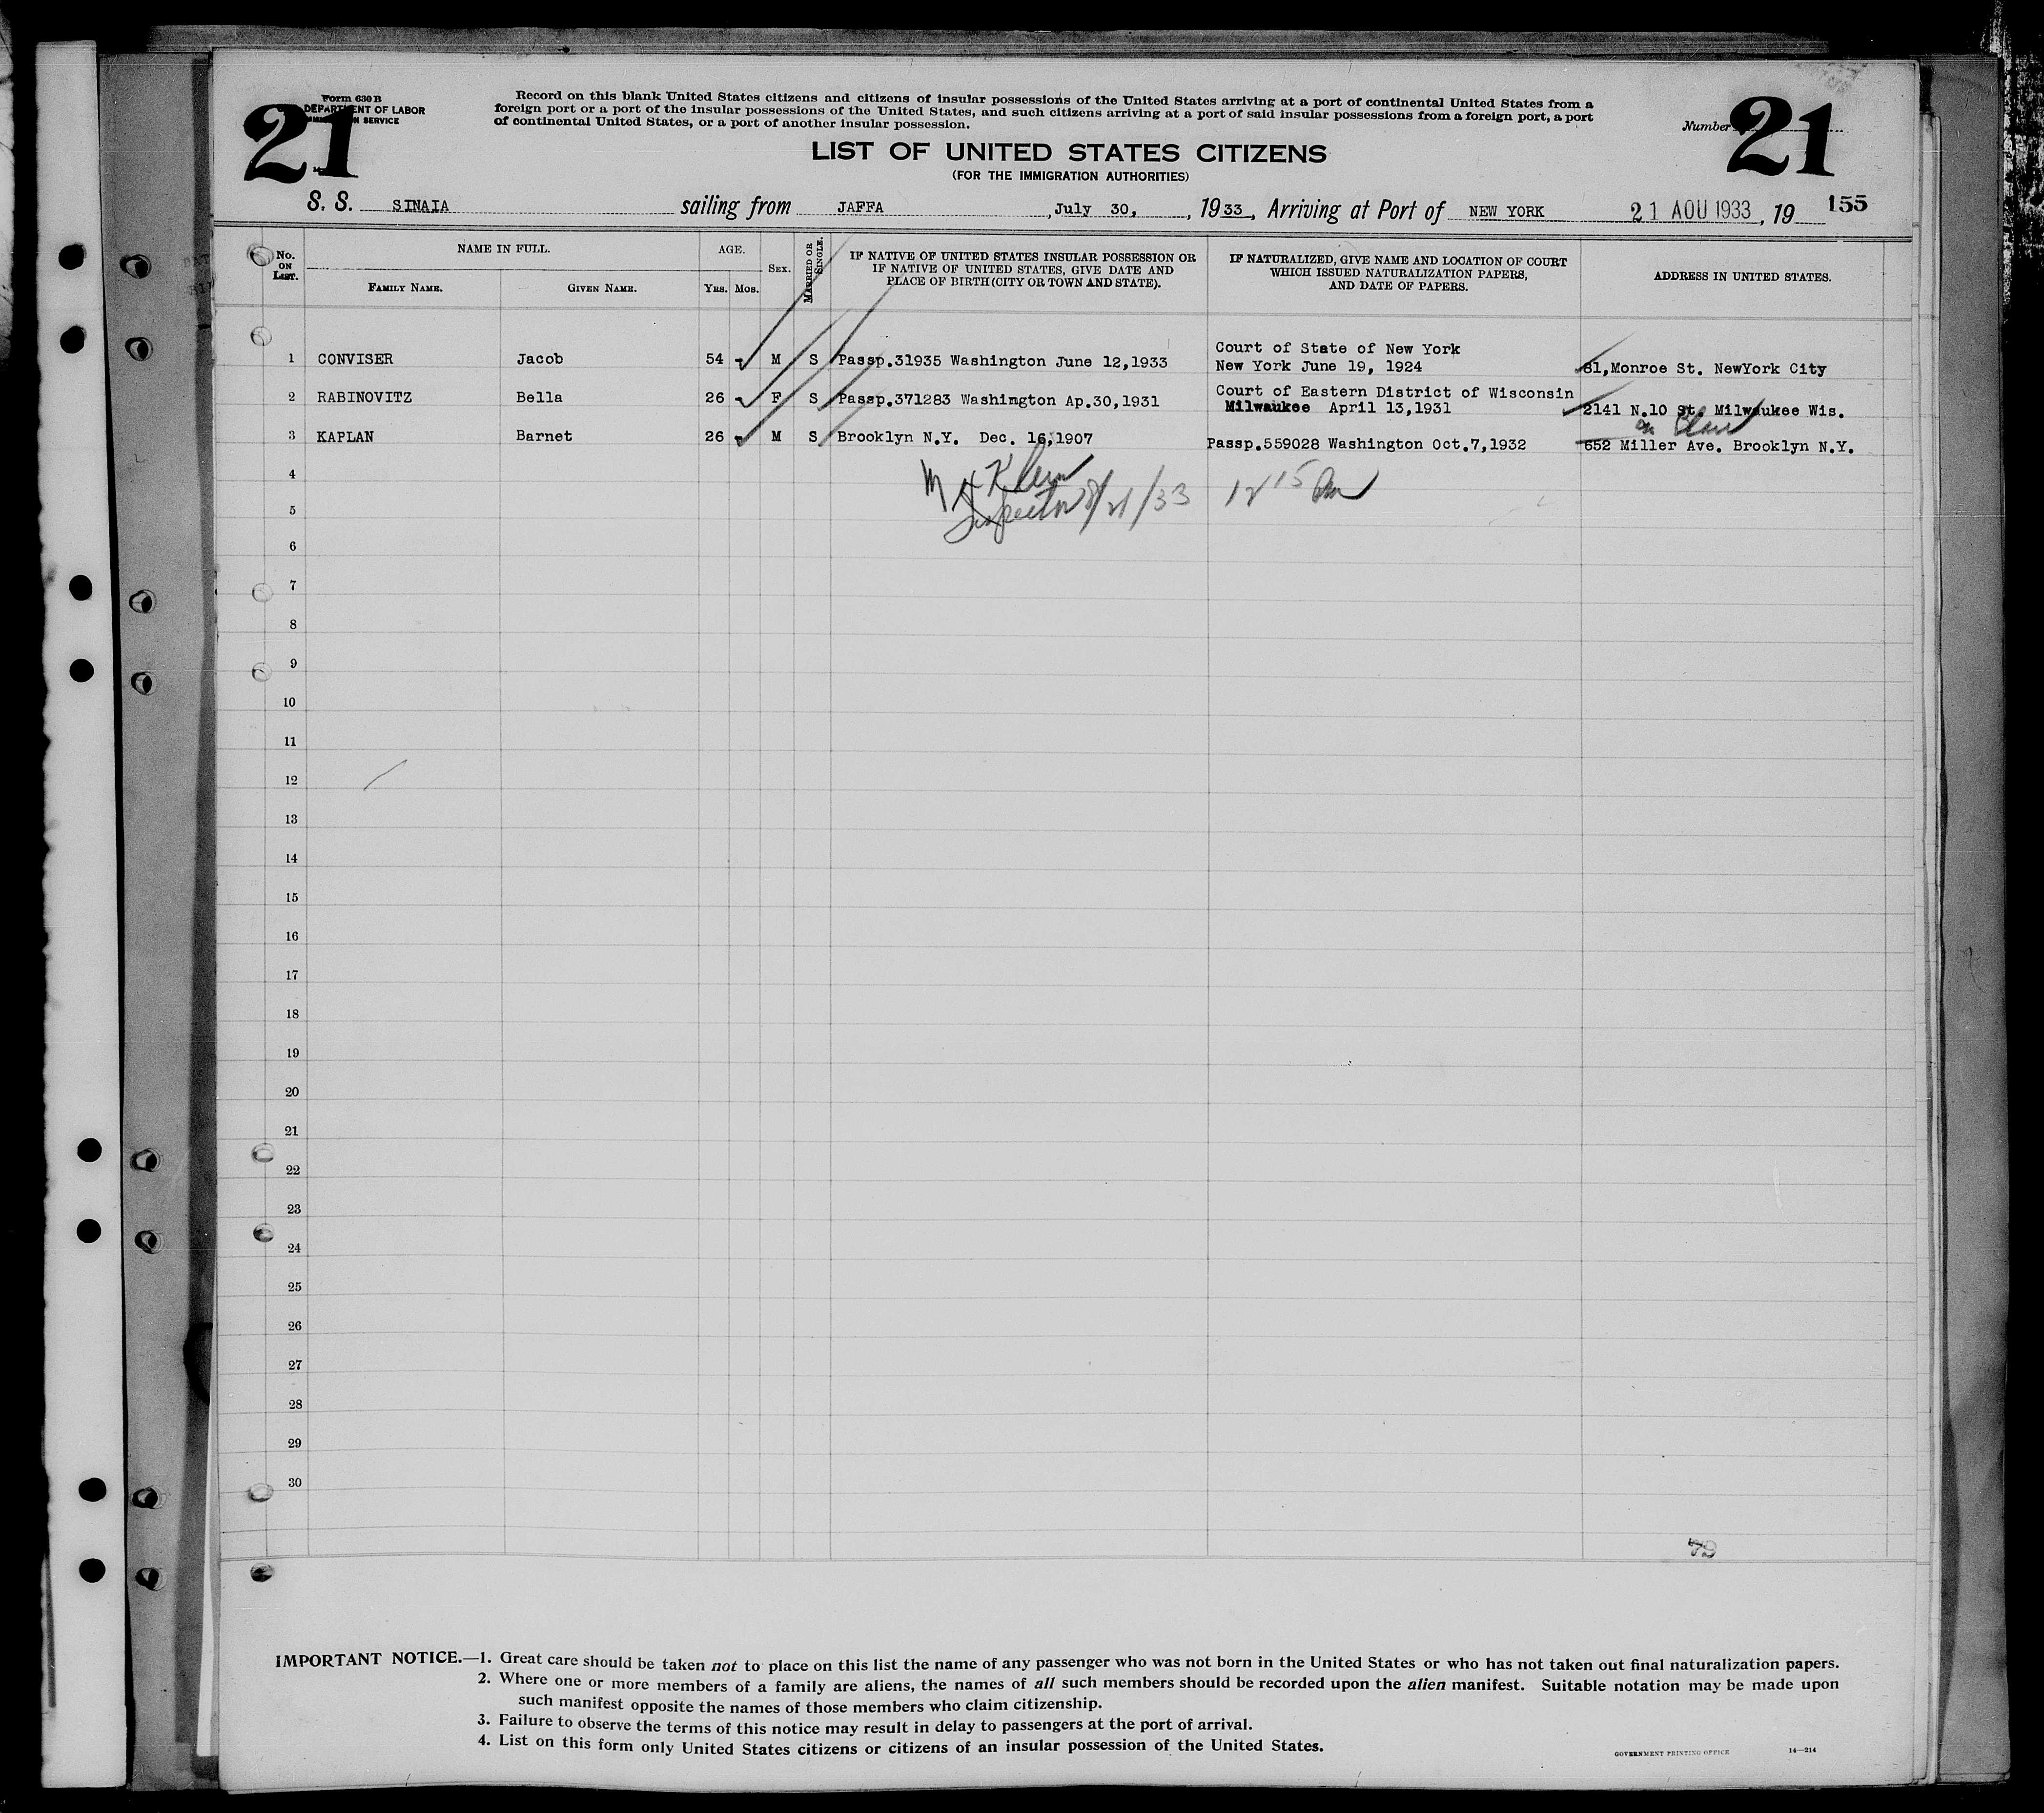 21
Form 630 B
DEPARTMENT OF LABOR
SERVICE
Record on this blank United States citizens and citizens of insular possessions of the United States arriving at a port of continental United States from a
foreign port or a port of the insular possessions of the United States, and such citizens arriving at a port of said insular possessions from a foreign port, a port
of continental United States, or a port of another insular possession.
Number 21
LIST OF UNITED STATES CITIZENS
(FOR THE IMMIGRATION AUTHORITIES)
S. S. SINAIA sailing from JAFFA, July 30, , 1933, Arriving at Port of NEW YORK 21 AOU 1933, 19 155
No. ON LIST. NAME IN FULL. AGE. SEX. MARRIED OR SINGLE. IF NATIVE OF UNITED STATES INSULAR POSSESSION OR IF NATIVE OF UNITED STATES, GIVE DATE AND PLACE OF BIRTH (CITY OR TOWN AND STATE). IF NATURALIZED, GIVE NAME AND LOCATION OF COURT WHICH ISSUED NATURALIZATION PAPERS, AND DATE OF PAPERS. ADDRESS IN UNITED STATES.
FAMILY NAME. GIVEN NAME. YRS. MOS.
1 CONVISER Jacob 54 M S Passp.31935 Washington June 12,1933 Court of State of New York New York June 19, 1924 81,Monroe St. NewYork City
2 RABINOVITZ Bella 26 F S Passp.371283 Washington Ap.30,1931 Court of Eastern District of Wisconsin Milwaukee April 13,1931 2141 N.10 St. Milwaukee Wis.
3 KAPLAN Barnet 26 M S Brooklyn N.Y. Dec. 16,1907 Passp.559028 Washington Oct.7,1932 652 Miller Ave. Brooklyn N.Y.
4
Klein
5
Inspector 8/21/33 12 15
6
7
8
9
10
11
12
13
14
15
16
17
18
19
20
21
22
23
24
25
26
27
28
29
30
79
IMPORTANT NOTICE.—1. Great care should be taken not to place on this list the name of any passenger who was not born in the United States or who has not taken out final naturalization papers.
2. Where one or more members of a family are aliens, the names of all such members should be recorded upon the alien manifest. Suitable notation may be made upon
such manifest opposite the names of those members who claim citizenship.
3. Failure to observe the terms of this notice may result in delay to passengers at the port of arrival.
4. List on this form only United States citizens or citizens of an insular possession of the United States.
GOVERNMENT PRINTING OFFICE 14—214